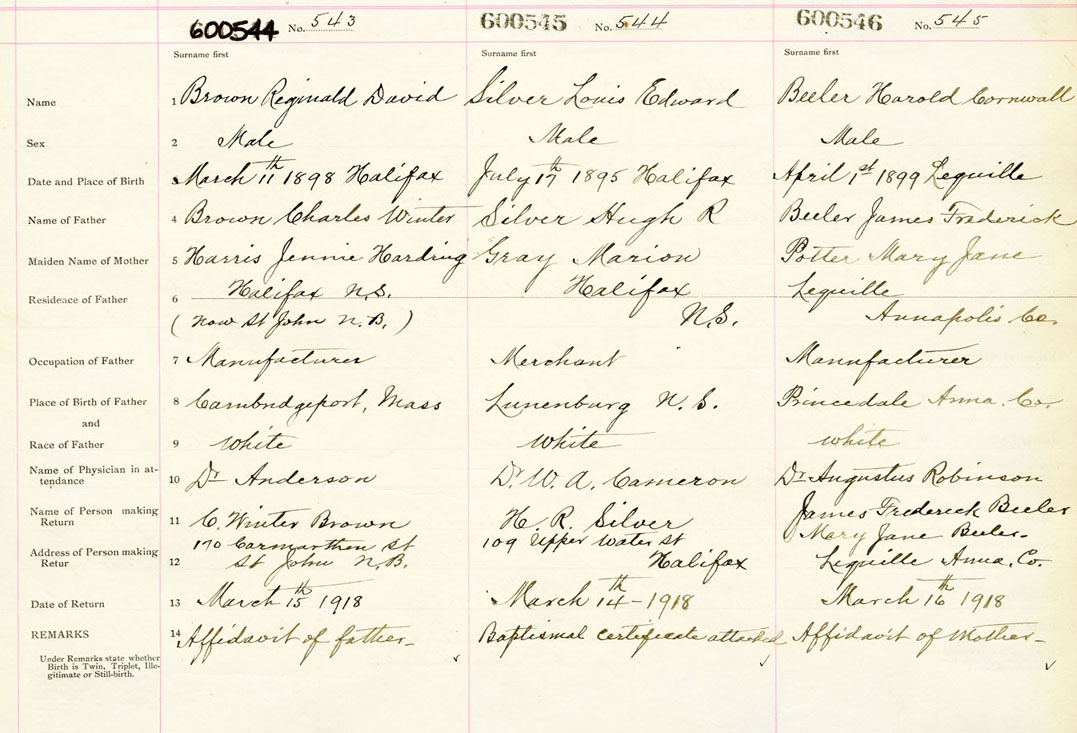 600544 No. 543 600545 No. 544 600546 No. 545
Surname first Surname first Surname first
Name 1 Brown Reginald David Silver Louis Edward Beeler Harold Cornwall
Sex 2 Male Male Male
Date and Place of Birth 3 March 11th 1898 Halifax July 17th 1895 Halifax April 1st 1899 Lequille
Name of Father 4 Brown Charles Winter Silver Hugh R Beeler James Frederick
Maiden Name of Mother 5 Harris Jennie Harding Gray Marion Potter Mary Jane
Residence of Father 6 Halifax N.S. Halifax Lequille
(now St John N.B.) N.S. Annapolis Co.
Occupation of Father 7 Manufacturer Merchant Manufacturer
Place of Birth of Father 8 Cambridgeport, Mass Lunenburg N.S. Princedale Anna. Co.
and
Race of Father 9 White White White
Name of Physician in at-
tendance 10 Dr Anderson Dr. W. A. Cameron Dr Augustus Robinson
Name of Person making James Frederick Beeler
Return 11 C. Winter Brown H. R. Silver Mary Jane Beeler
Address of Person making 170 Carmarthen St 109 Upper Water St
Retur 12 St John N.B. Halifax Lequille Anna. Co.
Date of Return 13 March 15th 1918 March 14th - 1918 March 16th 1918
REMARKS 14 Affidavit of father Baptismal certificate attached Affidavit of Mother
Under Remarks state whether
Birth is Twin, Triplet, Ille-
gitimate or Still-birth.